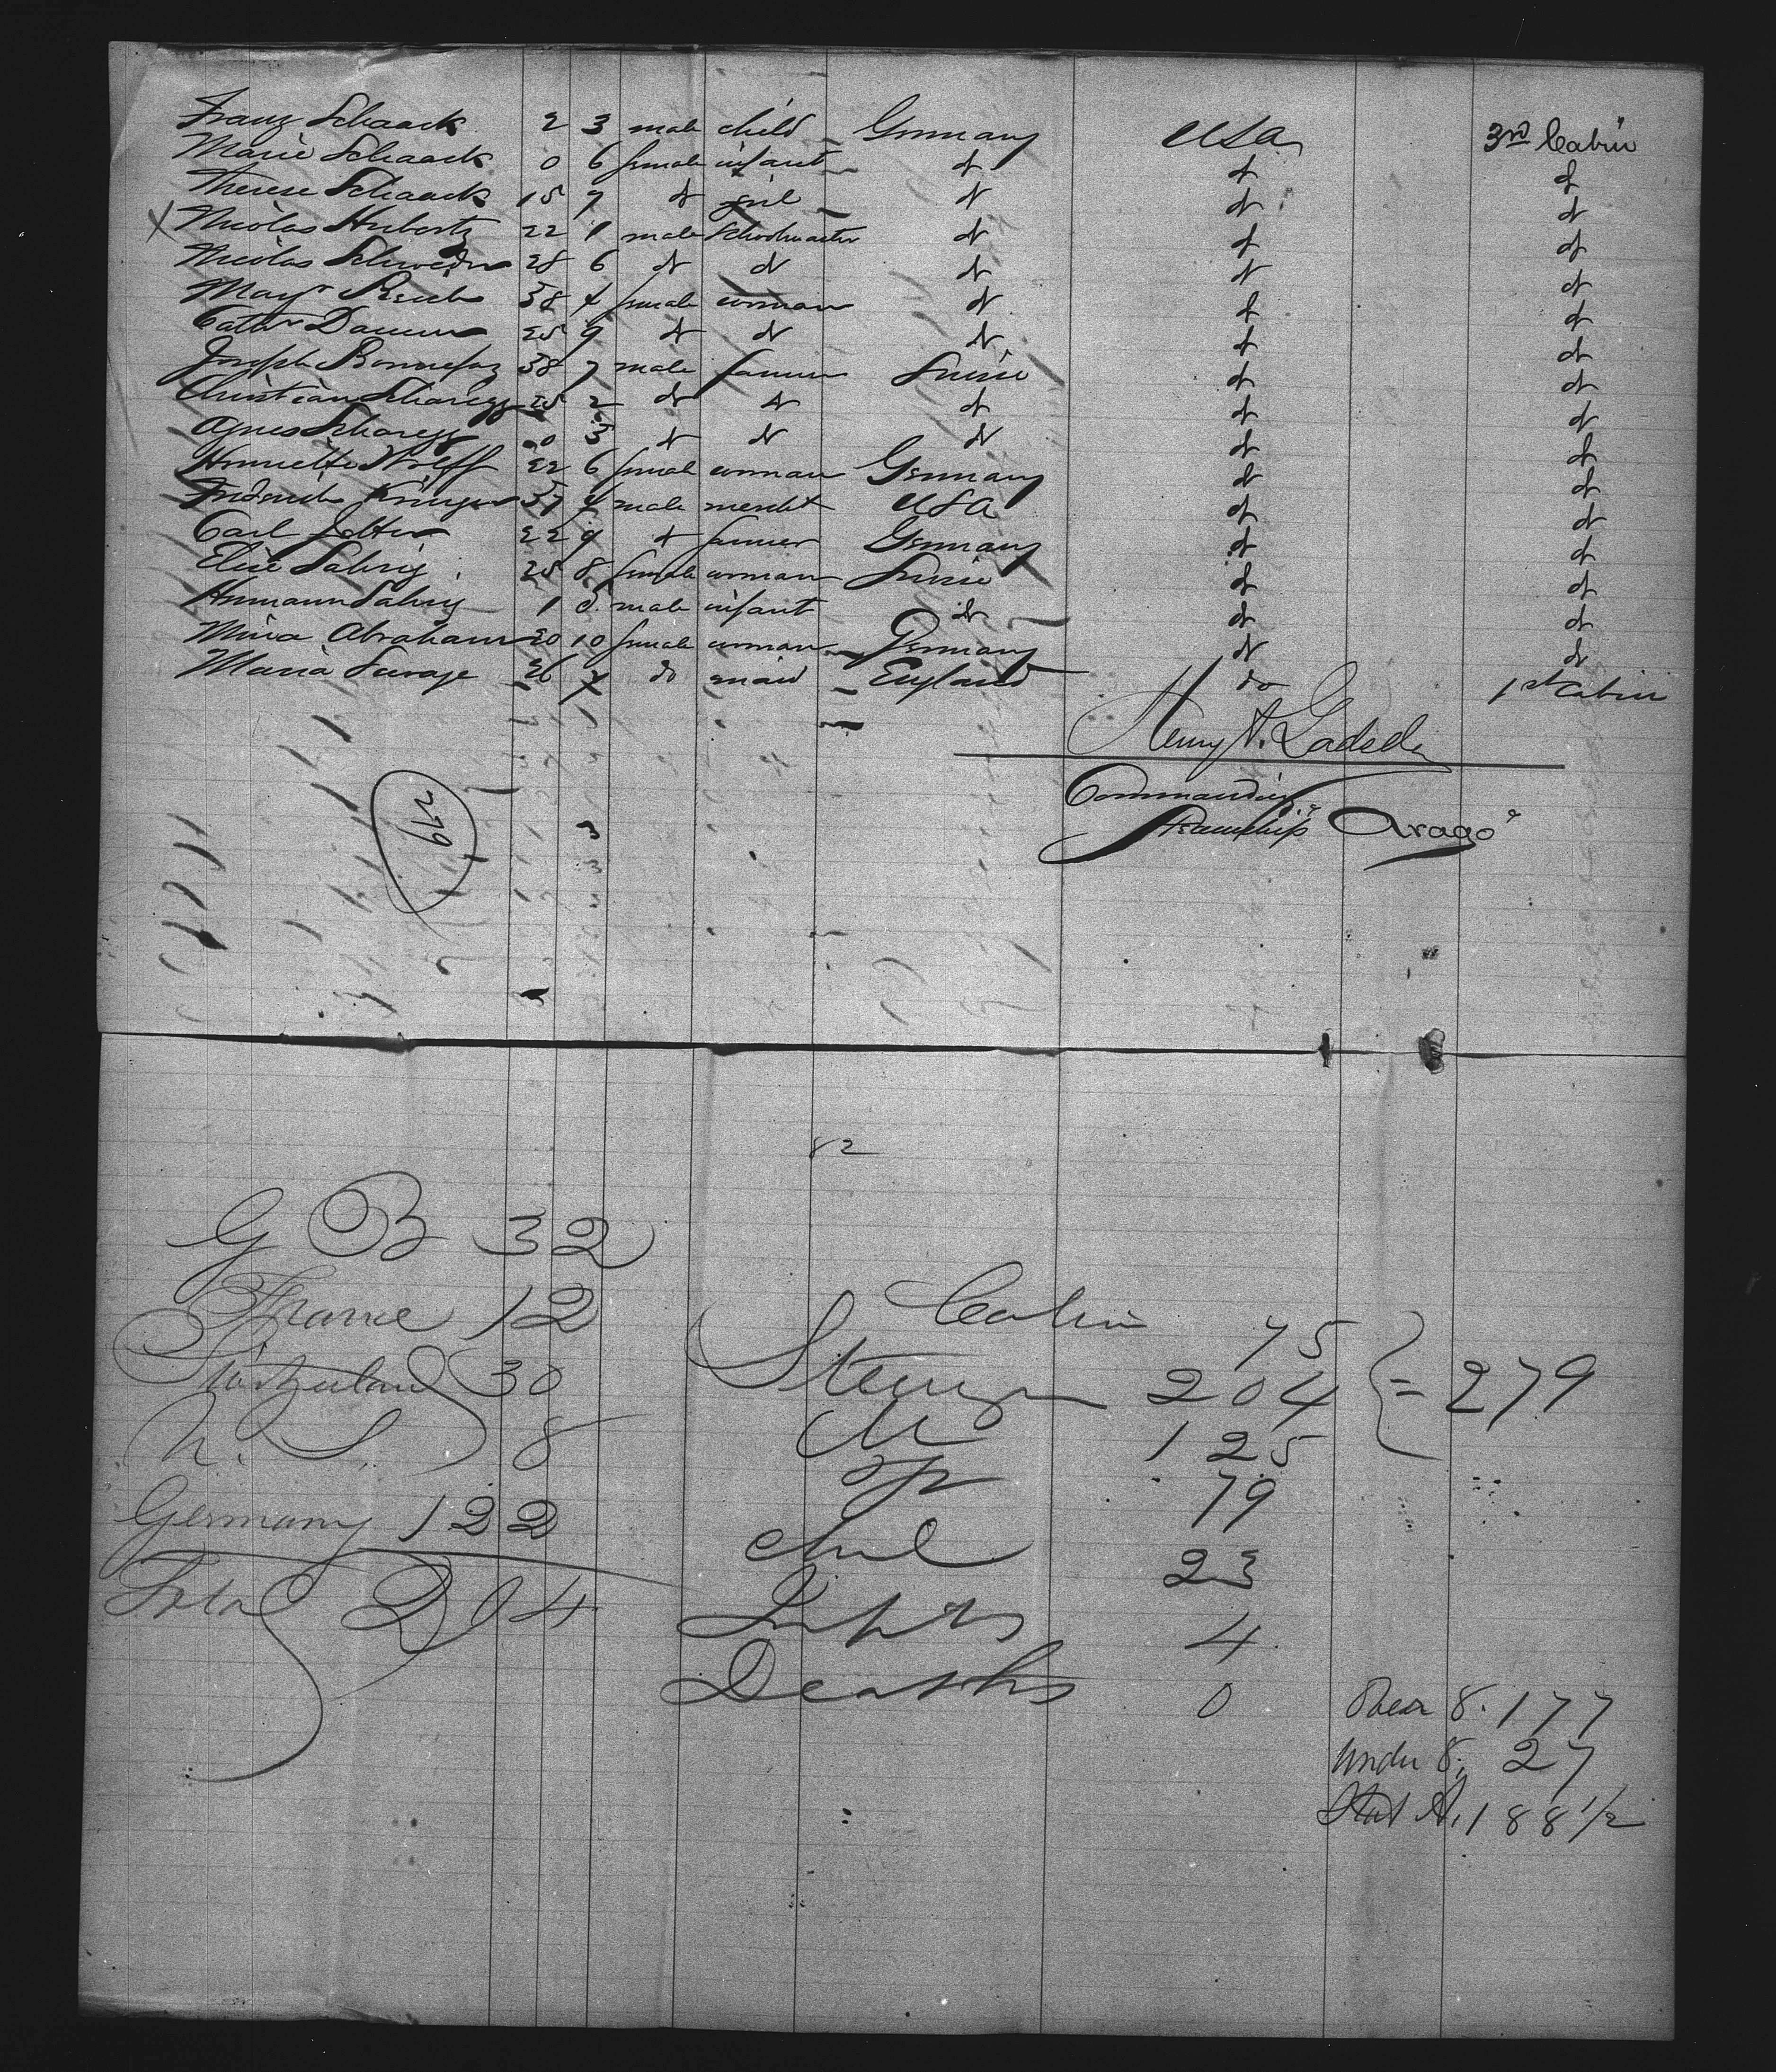 Franz Schaack 2 3 male child Germany USA 3rd Cabin
Marie Schaack 0 6 female infant do do do
Therese Schaack 15 7 do girl do do do
X Nicolas Hubertz 22 1 male Schoolmaster do do do
Nicolas 28 6 do do do do do
58 4 female woman do do do
25 9 do do do do do
Joseph 38 7 male farmer Suisse do do
Christian Scharegg 25 2 do do do do do
Agnes Scharegg 0 3 do do do do do
Henriette Wolff 22 6 female woman Germany do do
Frederick 37 4 male mercht USA do do
Carl 22 9 do farmer Germany do do
Elise 25 8 female woman Suisse do do
Hermann 1 male infant do do do
Mina Abraham 20 10 female woman Germany do do
Maria Savage 26 7 do maid England do 1st Cabin
Henry A. Gadsden
Commanding
Steamship "Arago"
279
82
G B 32
France 12
Switzerland 30
U. S. 8
Germany 122
Total 204
Cabin 75
Steerage 204 } = 279
M 125
F 79
Chil 23
Infts 4
Deaths 0
Over 8. 177
Under 8. 27
Stat A. 188 1/2